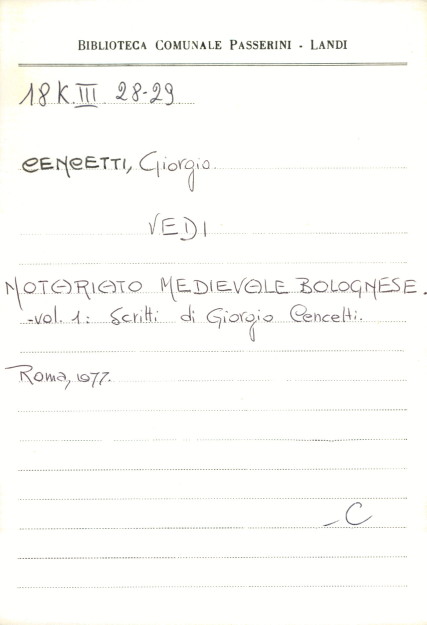 BIBLIOTECA COMUNALE PASSERINI - LANDI
18 K III 28-29
CENCETTI, Giorgio
VEDI
NOTARIATO MEDIEVALE BOLOGNESE.
-vol. 1: Scritti di Giorgio Cencetti.
Roma, 1977.
-C